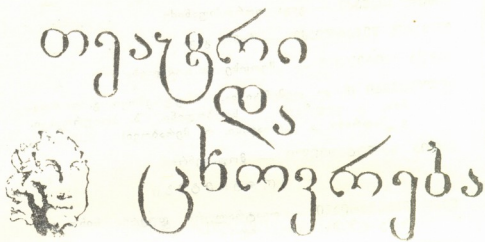 თეატრი
და
ცხოვრება